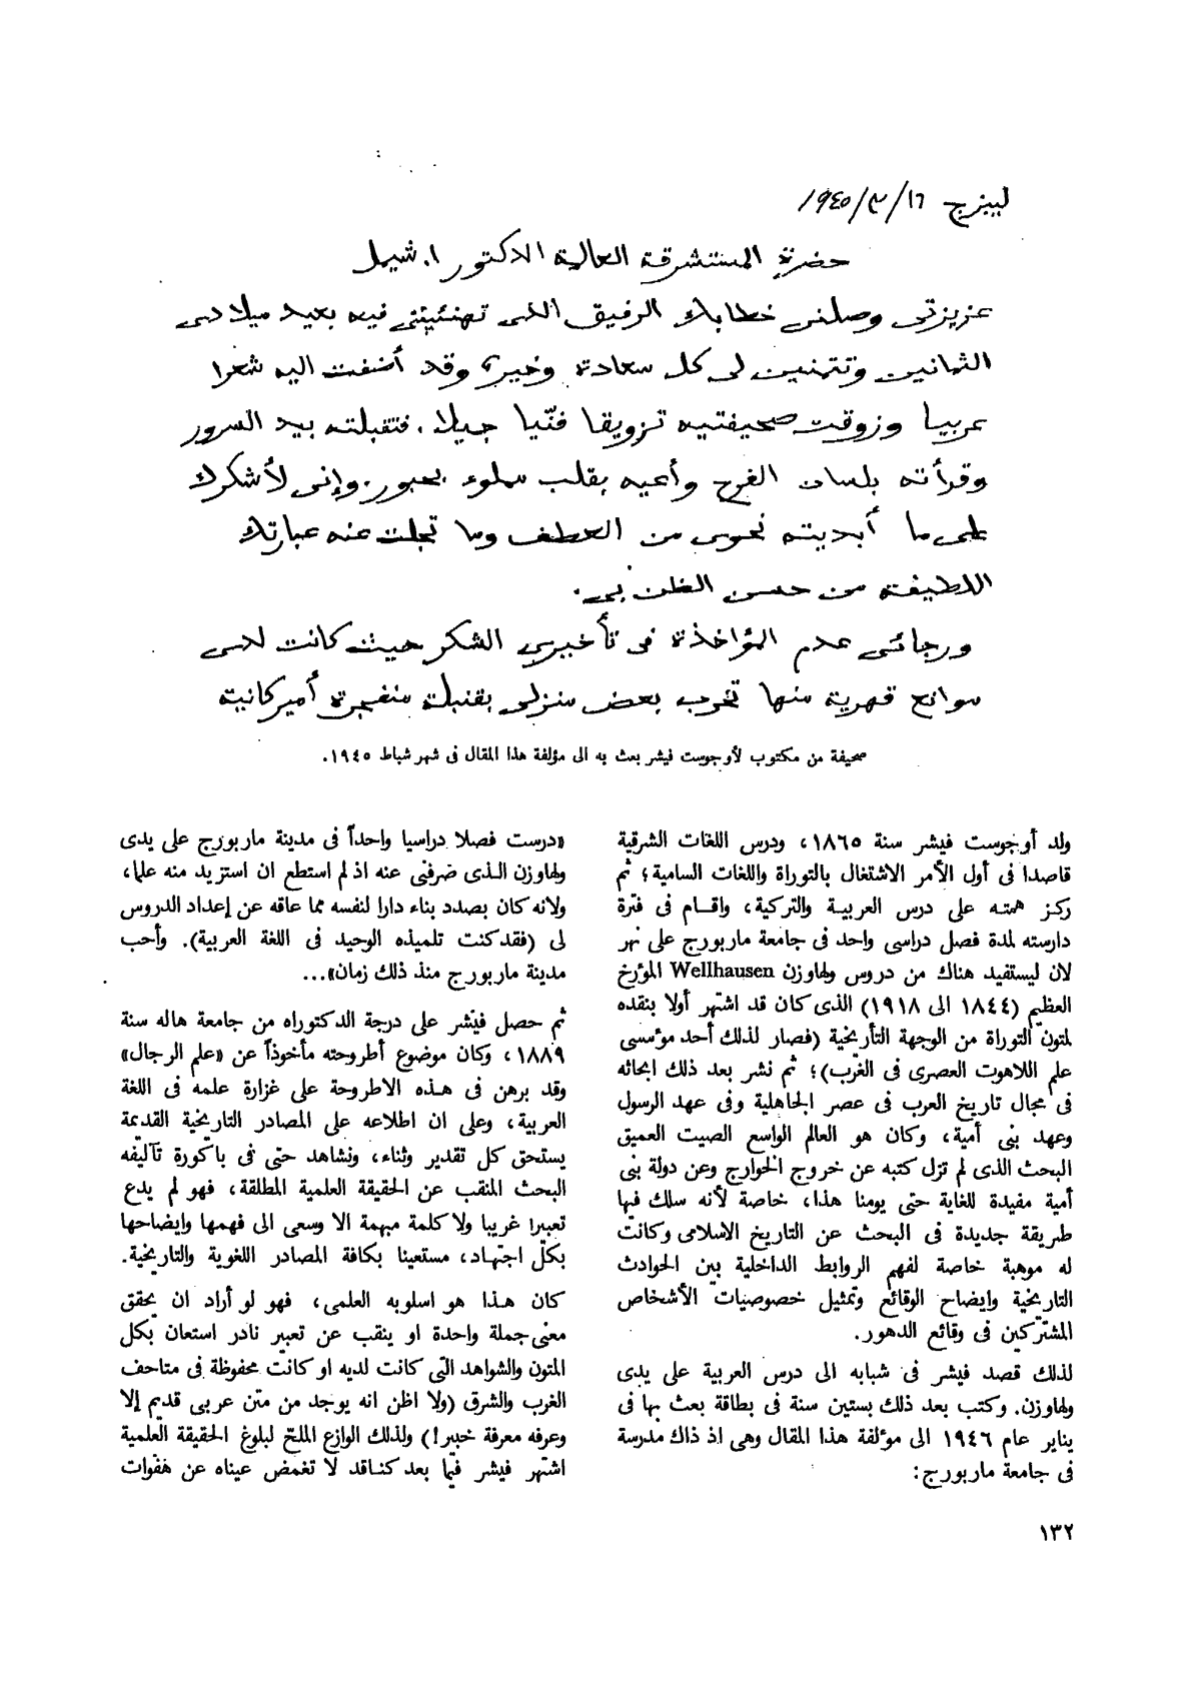 ليبزج ١٦/٣/١٩٤٥
حضرة المستشرقة العالمة الدكتور ا. شيمل
عزيزتى وصلنى خطابك الرفيق الذى تهنئيننى فيه بعيد ميلادى
الثمانين وتتمنين لى كل سعادة وخير، وقد أضفت اليه شعرا
عربيا وزوقت صحيفتيه تزويقا فنّيا جميلا. فتقبلته بيد السرور
وقرأته بلسان الفرح وأعيه بقلب مملوء بحبور. وإنى لأشكرك
على ما أبديته نحوى من العطف وما تجلت عنه عبارتك
اللطيفة من حسن الظن بى.
ورجائى عدم المؤاخذة فى تأخيري الشكر حيث كانت لدى
سوانح قهرية منها تخرب بعض منزلى بقنبلة منفجرة أميركانية
صحيفة من مكتوب لأوجوست فيشر بعث به الى مؤلفة هذا المقال فى شهر شباط ١٩٤٥.
ولد أوجوست فيشر سنة ١٨٦٥، ودرس اللغات الشرقية
قاصدا فى أول الأمر الاشتغال بالتوراة واللغات السامية؛ ثم
ركز همته على درس العربية والتركية، واقام فى فترة
دارسته لمدة فصل دراسى واحد فى جامعة ماربورج على نهر
لان ليستفيد هناك من دروس ولهاوزن Wellhausen المؤرخ
العظيم (١٨٤٤ الى ١٩١٨) الذى كان قد اشتهر أولا بنقده
لمتون التوراة من الوجهة التأريخية (فصار لذلك أحد مؤسسى
علم اللاهوت العصرى فى الغرب)؛ ثم نشر بعد ذلك ابحاثه
فى مجال تاريخ العرب فى عصر الجاهلية وفى عهد الرسول
وعهد بنى أمية، وكان هو العالم الواسع الصيت العميق
البحث الذى لم تزل كتبه عن خروج الخوارج وعن دولة بنى
أمية مفيدة للغاية حتى يومنا هذا، خاصة لأنه سلك فيها
طريقة جديدة فى البحث عن التاريخ الاسلامى وكانت
له موهبة خاصة لفهم الروابط الداخلية بين الحوادث
التاريخية وايضاح الوقائع وتمثيل خصوصيات الأشخاص
المشتركين فى وقائع الدهور.
لذلك قصد فيشر فى شبابه الى درس العربية على يدى
ولهاوزن. وكتب بعد ذلك بستين سنة فى بطاقة بعث بها فى
يناير عام ١٩٤٦ الى مؤلفة هذا المقال وهى اذ ذاك مدرسة
فى جامعة ماربورج:
«درست فصلا دراسيا واحداً فى مدينة ماربورج على يدى
ولهاوزن الذى صرفنى عنه اذ لم استطع ان استزيد منه علما،
ولانه كان بصدد بناء دارا لنفسه مما عاقه عن إعداد الدروس
لى (فقد كنت تلميذه الوحيد فى اللغة العربية). وأحب
مدينة ماربورج منذ ذلك زمان»...
ثم حصل فيشر على درجة الدكتوراه من جامعة هاله سنة
١٨٨٩، وكان موضوع أطروحته مأخوذاً عن «علم الرجال»
وقد برهن فى هذه الاطروحة على غزارة علمه فى اللغة
العربية، وعلى ان اطلاعه على المصادر التاريخية القديمة
يستحق كل تقدير وثناء، ونشاهد حتى فى باكورة تآليفه
البحث المنقب عن الحقيقة العلمية المطلقة، فهو لم يدع
تعبيرا غريبا ولا كلمة مبهمة الا وسعى الى فهمها وايضاحها
بكل اجتهاد، مستعينا بكافة المصادر اللغوية والتاريخية.
كان هذا هو اسلوبه العلمى، فهو لو أراد ان يحقق
معنى جملة واحدة او ينقب عن تعبير نادر استعان بكل
المتون والشواهد التى كانت لديه او كانت محفوظة فى متاحف
الغرب والشرق (ولا اظن انه يوجد من متن عربى قديم إلا
وعرفه معرفة خبير!) ولذلك الوازع الملح لبلوغ الحقيقة العلمية
اشتهر فيشر فيما بعد كناقد لا تغمض عيناه عن هفوات
١٣٢